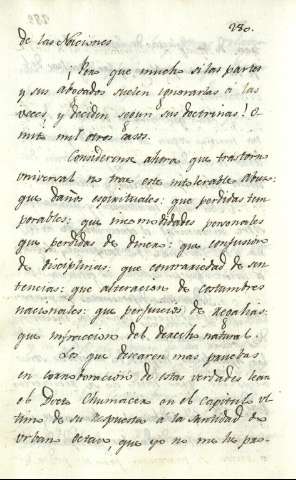 230.
de las Naciones.
¡Pero que mucho si las partes
y sus Abogados suelen ignorarlas a las
veces, y deciden segun sus doctrinas! O
mito mil otros casos.
Considerense ahora que trastorno
universal no trae este intolerable abuso:
que daños espirituales: que perdidas tem
porables: que incomodidades personales
que perdidas de dinero: que confusion
de disciplinas: que contrariedad de sen
tencias: que alteracion de costumbres
nacionales: que perjuicios de regalias:
que infraccion del derecho natural.
Los que desearen mas pruebas
en corroboracion de estas verdades lean
el Doctor Chumacero en el Capitulo ul
timo de su respuesta à la Santidad de
Urbano Octavo, que yo no me he pro-